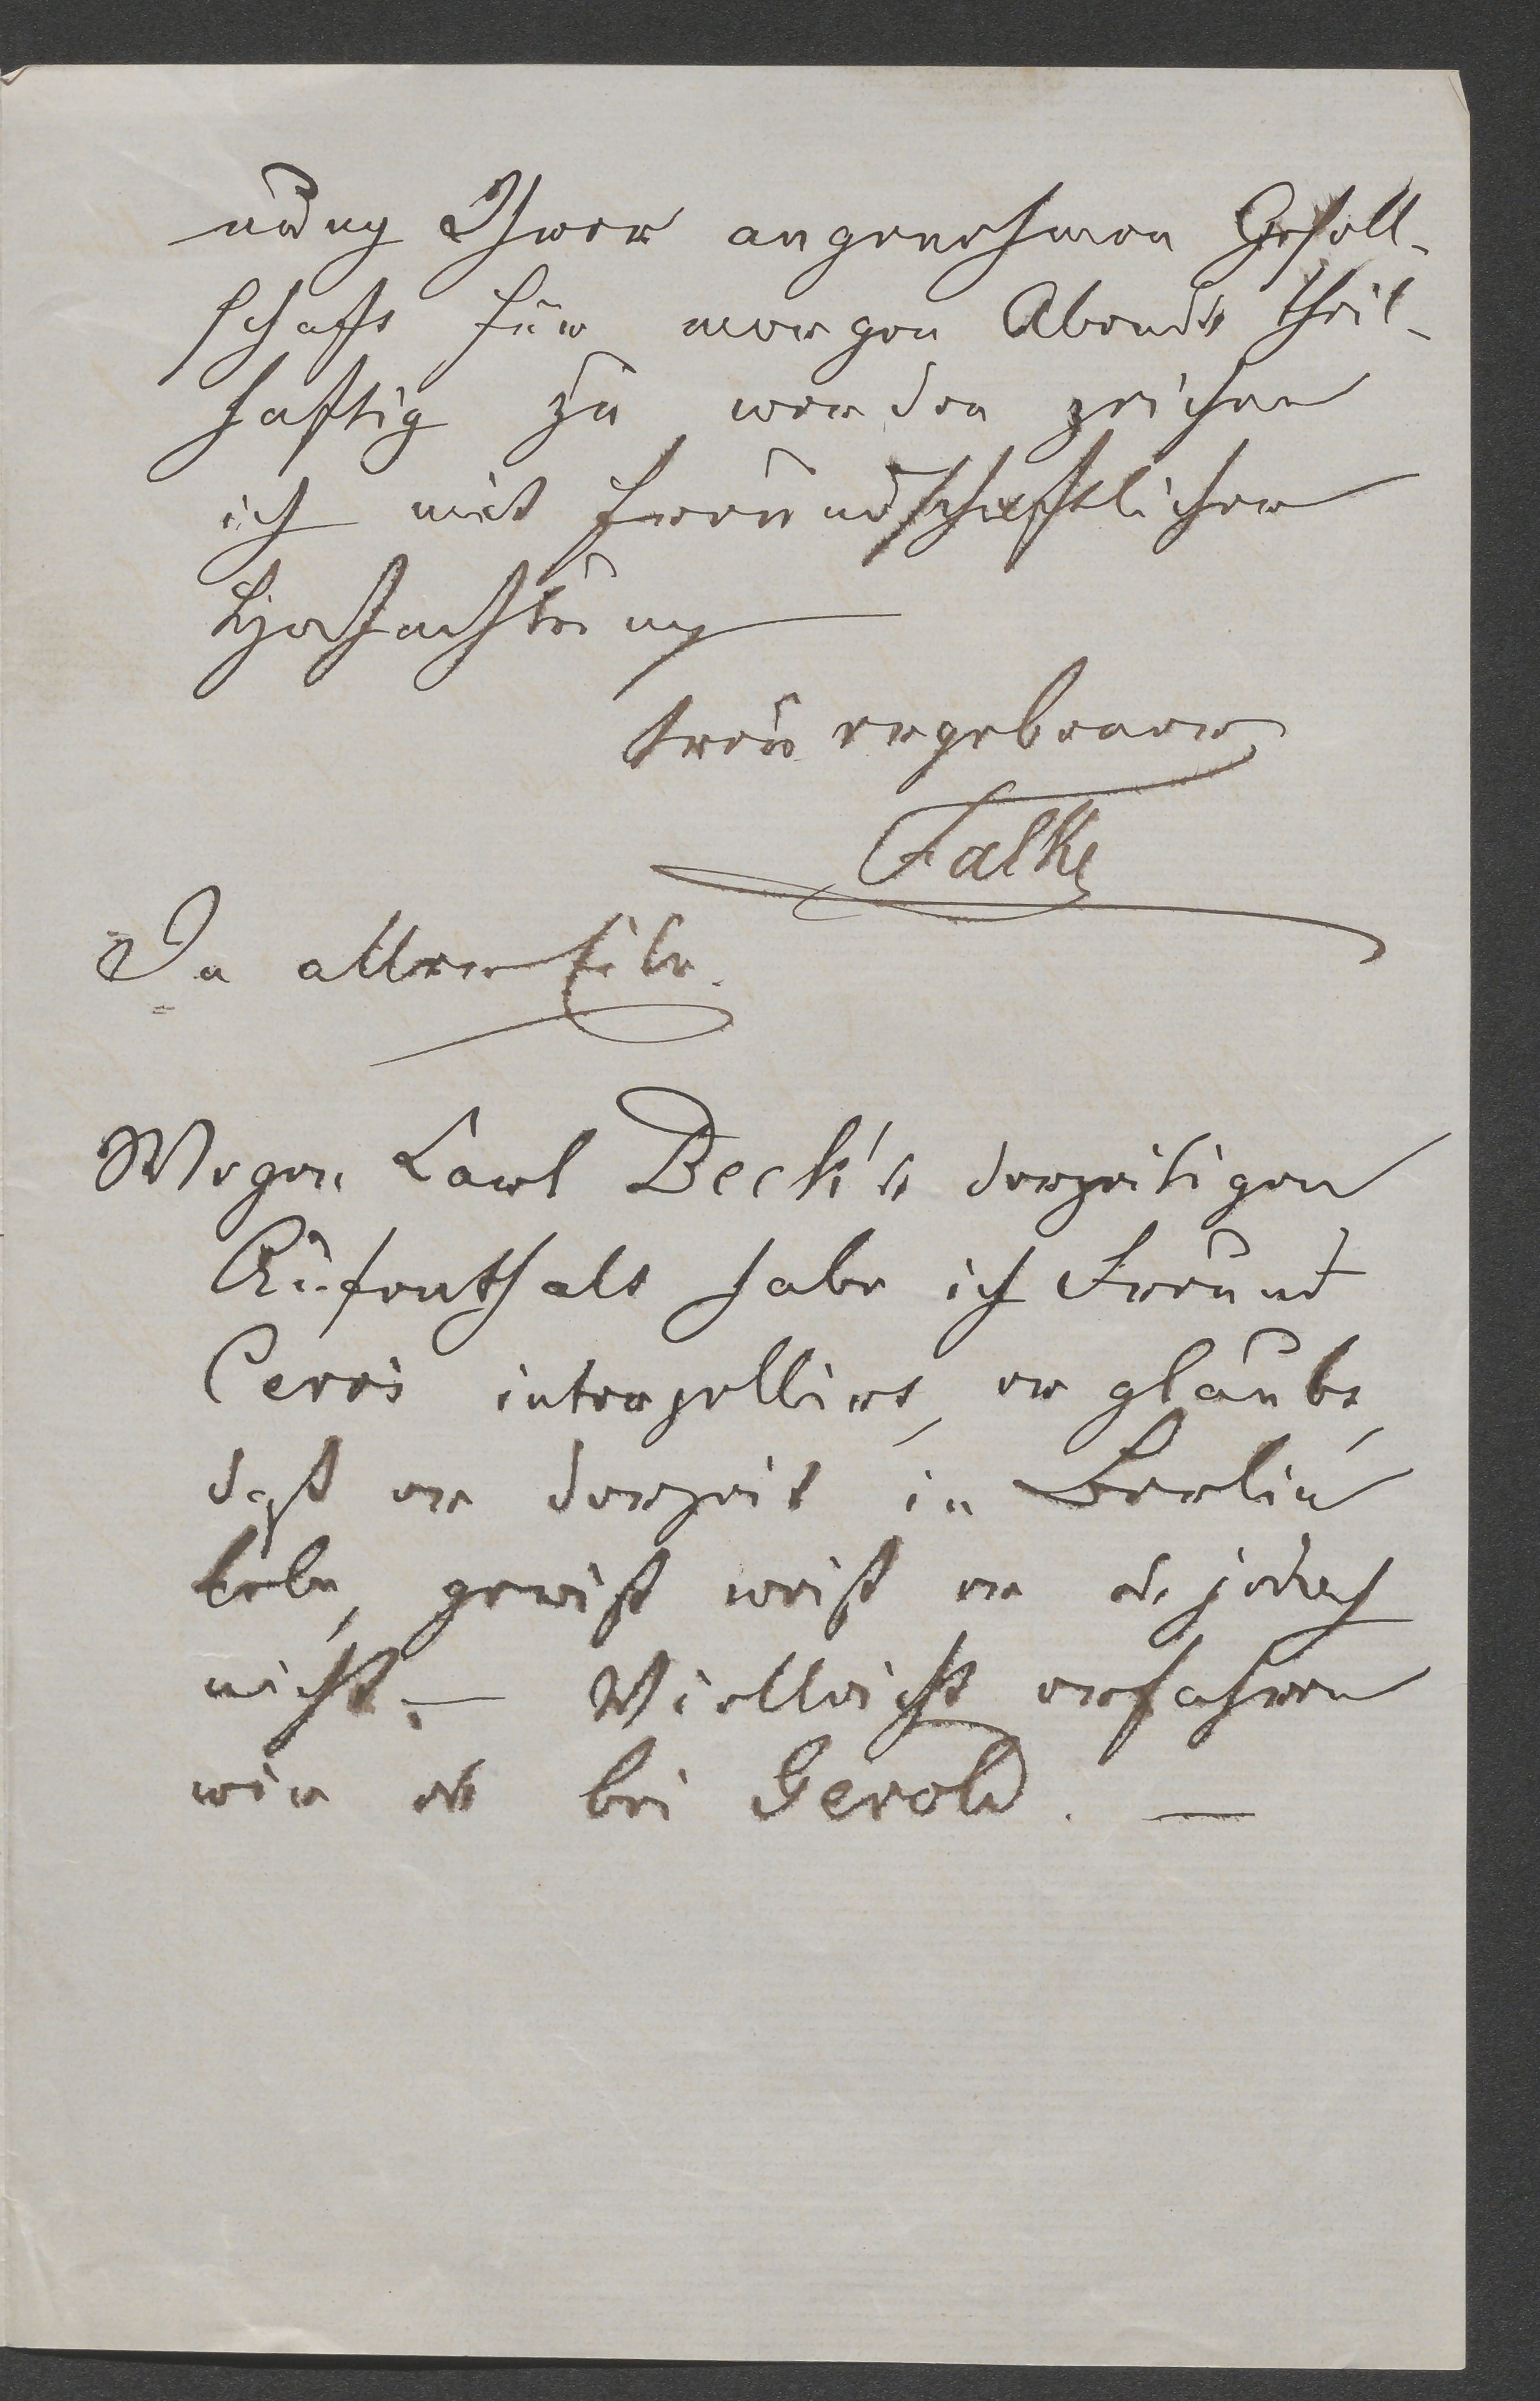 nung Ihrer angenehmen Gesell-
schaft für morgen Abends theil-
haftig zu werden zeichne
ich mit freundschaftlicher
Hochachtung
treu ergebener
Falke
In aller Eile.
Wegen Carl Beck's derzeitigen
Aufenthalt habe ich Freund
Cerri interpellirt, er glaubt
daß er derzeit in Berlin
lebe, gewiß weiß er es jedoch
nicht. — Vielleicht erfahren
wir es bei Gerold. —